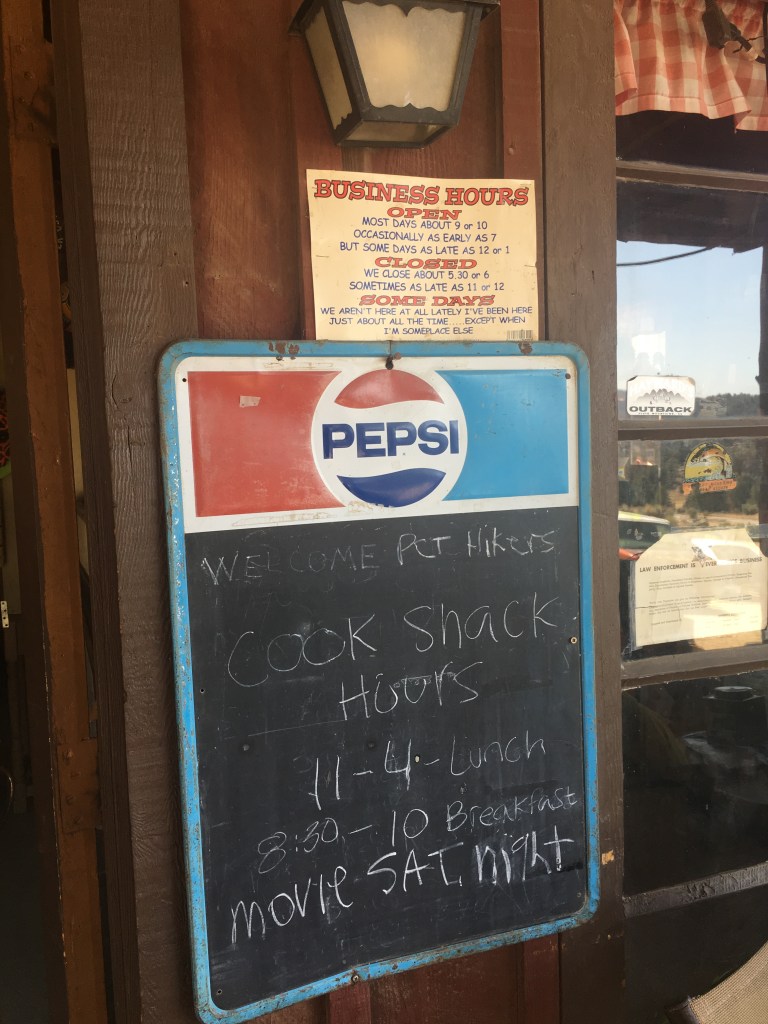 BUSINESS HOURS
OPEN
MOST DAYS ABOUT 9 or 10
OCCASIONALLY AS EARLY AS 7
BUT SOME DAYS AS LATE AS 12 or 1
CLOSED
WE CLOSE ABOUT 5.30 or 6
SOMETIMES AS LATE AS 11 or 12
SOME DAYS
WE AREN'T HERE AT ALL LATELY I'VE BEEN HERE
JUST ABOUT ALL THE TIME.....EXCEPT WHEN
I'M SOMEPLACE ELSE
PEPSI
WELCOME PCT Hikers
COOK Shack
HOURS
11-4- Lunch
8:30-10 Breakfast
movie SAT night
OUTBACK
LAW ENFORCEMENT IS BUSINESS